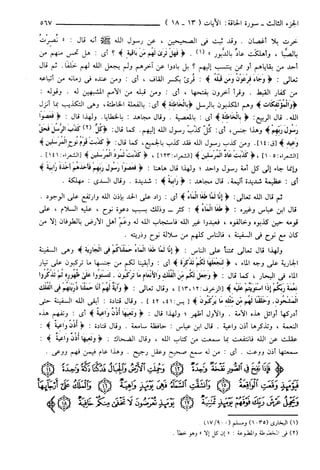 الجزء التاسع والعشرون - سورة الحاقة: الآيات (١٣ - ١٨) ٥٦٧
خربت بلا أغصان. وقد ثبت في الصحيحين، عن رسول الله ﷺ أنه قال: « نُصِرتُ
بالصَّبا، وأهلكَت عادٌ بالدَّبور»(١). ﴿ فَهَلْ تَرَىٰ لَهُم مِّن بَاقِيَةٍ ﴾ ؟ أي: هل تحس منهم من
أحد من بقاياهم أو ممن ينتسب إليهم؟ بل بادوا عن آخرهم ولم يجعل الله لهم خَلَفا. ثم قال
تعالى: ﴿ وَجَاءَ فِرْعَوْنُ وَمَن قَبْلَهُ ﴾ : قُرئ بكسر القاف، أي: ومن عنده في زمانه من أتباعه
من كفار القبط. وقرأ آخرون بفتحها، أي: ومن قبله من الأمم المشبهين له. وقوله:
﴿ وَالْمُؤْتَفِكَاتُ ﴾ وهم المكذبون بالرسل ﴿ بِالْخَاطِئَةِ ﴾ أي: بالفعلة الخاطئة، وهي التكذيب بما أنزل
الله. قال الربيع: ﴿ بِالْخَاطِئَةِ ﴾ أي: بالمعصية. وقال مجاهد: بالخطايا. ولهذا قال: ﴿ فَعَصَوْا
رَسُولَ رَبِّهِمْ ﴾ وهذا جنس، أي: كُلٌّ كذبَ رسول الله إليهم. كما قال: ﴿ كُلٌّ(٢) كَذَّبَ الرُّسُلَ فَحَقَّ
وَعِيدِ ﴾ [ق: ١٤]. ومن كذب رسول الله فقد كذب بالجميع، كما قال: ﴿ كَذَّبَتْ قَوْمُ نُوحٍ الْمُرْسَلِينَ ﴾
[الشعراء: ١٠٥] ﴿ كَذَّبَتْ عَادٌ الْمُرْسَلِينَ ﴾ [الشعراء: ١٢٣]. ﴿ كَذَّبَتْ ثَمُودُ الْمُرْسَلِينَ ﴾ [الشعراء: ١٤١].
وإنما جاء إلى كل أمة رسول واحد؛ ولهذا قال هاهنا: ﴿ فَعَصَوْا رَسُولَ رَبِّهِمْ فَأَخَذَهُمْ أَخْذَةً رَّابِيَةً ﴾
أي: عظيمة شديدة أليمة. قال مجاهد: ﴿ رَابِيَةً ﴾ : شديدة. وقال السدي: مهلكة.
ثم قال الله تعالى: ﴿ إِنَّا لَمَّا طَغَا الْمَاءُ ﴾ أي: زاد على الحد بإذن الله وارتفع على الوجود.
قال ابن عباس وغيره: ﴿ طَغَا الْمَاءُ ﴾ : كثر ــ وذلك بسبب دعوة نوح، عليه السلام، على
قومه حين كذبوه وخالفوه، فعبدوا غير الله فاستجاب الله له وعَمّ أهل الأرض بالطوفان إلا من
كان مع نوح في السفينة، فالناس كلهم من سلالة نوح وذريته.
ولهذا قال تعالى ممتناً على الناس: ﴿ إِنَّا لَمَّا طَغَا الْمَاءُ حَمَلْنَاكُمْ فِي الْجَارِيَةِ ﴾ وهي السفينة
الجارية على وجه الماء، ﴿ لِنَجْعَلَهَا لَكُمْ تَذْكِرَةً ﴾ أي: وأبقينا لكم من جنسها ما تركبون على تيار
الماء في البحار، كما قال: ﴿ وَجَعَلَ لَكُم مِّنَ الْفُلْكِ وَالْأَنْعَامِ مَا تَرْكَبُونَ. لِتَسْتَوُوا عَلَىٰ ظُهُورِهِ ثُمَّ تَذْكُرُوا
نِعْمَةَ رَبِّكُمْ إِذَا اسْتَوَيْتُمْ عَلَيْهِ ﴾ [الزخرف: ١٢، ١٣]، وقال تعالى: ﴿ وَآيَةٌ لَّهُمْ أَنَّا حَمَلْنَا ذُرِّيَّتَهُمْ فِي الْفُلْكِ
الْمَشْحُونِ. وَخَلَقْنَا لَهُم مِّن مِّثْلِهِ مَا يَرْكَبُونَ ﴾ [يس: ٤١، ٤٢]. وقال قتادة: أبقى الله السفينة حتى
أدركها أوائل هذه الأمة. والأول أظهر؛ ولهذا قال: ﴿ وَتَعِيَهَا أُذُنٌ وَاعِيَةٌ ﴾ أي: وتفهم هذه
النعمة، وتذكرها أذن واعية. قال ابن عباس: حافظة سامعة. وقال قتادة: ﴿ أُذُنٌ وَاعِيَةٌ ﴾ :
عقلت عن الله فانتفعت بما سمعت من كتاب الله، وقال الضحاك: ﴿ وَتَعِيَهَا أُذُنٌ وَاعِيَةٌ ﴾ :
سمعتها أذن ووعت. أي: من له سمع صحيح وعقل رجيح. وهذا عام فيمن فهم ووعى.
﴿ فَإِذَا نُفِخَ فِي الصُّورِ نَفْخَةٌ وَاحِدَةٌ ﴿١٣﴾ وَحُمِلَتِ الْأَرْضُ وَالْجِبَالُ فَدُكَّتَا دَكَّةً وَاحِدَةً ﴿١٤﴾
فَيَوْمَئِذٍ وَقَعَتِ الْوَاقِعَةُ ﴿١٥﴾ وَانشَقَّتِ السَّمَاءُ فَهِيَ يَوْمَئِذٍ وَاهِيَةٌ ﴿١٦﴾ وَالْمَلَكُ عَلَىٰ أَرْجَائِهَا وَيَحْمِلُ
عَرْشَ رَبِّكَ فَوْقَهُمْ يَوْمَئِذٍ ثَمَانِيَةٌ ﴿١٧﴾ يَوْمَئِذٍ تُعْرَضُونَ لَا تَخْفَىٰ مِنكُمْ خَافِيَةٌ ﴿١٨﴾
(١) البخاري (١٠٣٥) ومسلم (٩٠٠ / ١٧).
(٢) في المخطوطة والمطبوعة: «إن كل إلا» وهو خطأ.